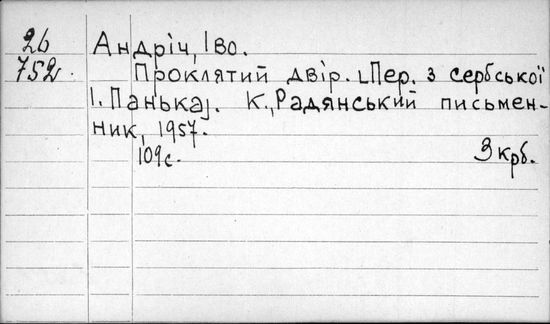 26
752.
Андріч, Іво.
Проклятий двір. [Пер. з сербської
І. Панька]. К., Радянський письмен-
ник, 1957.
109 с.
3 крб.